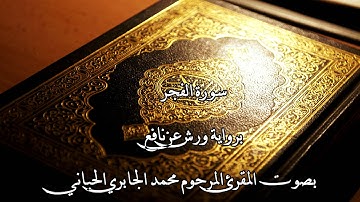 سورة الفجر
برواية ورش عن نافع
بصوت المقرئ المرحوم محمد الجابري الحياني